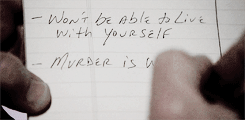 - Won't be able to live
with yourself
- Murder is